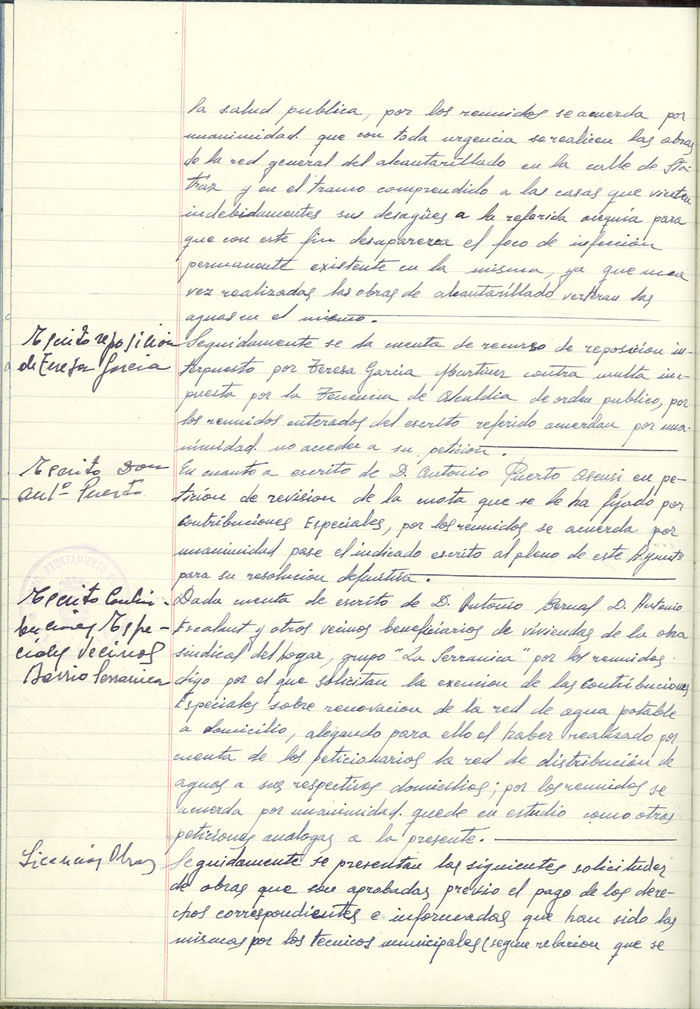 la salud publica, por los reunidos se acuerda por
unanimidad que con toda urgencia se realicen las obras
de la red general del alcantarillado en la calle de
y en el tramo comprendido a las casas que vierten
indebidamentes sus desagües a la referida acequia para
que con este fin desaparezca el foco de infección
permanente existente en la misma, ya que una
vez realizadas las obras de alcantarillado verteran las
aguas en el mismo.
Escrito reposición
de Teresa Garcia
Seguidamente se da cuenta de recurso de reposicion in-
terpuesto por Teresa Garcia Martinez contra multa im-
puesta por la Tenencia de Alcaldia de orden publico, por
los reunidos enterados del escrito referido acuerdan por una-
nimidad no acceder a su petición.
Escrito Don
Antº Puerto
En cuanto a escrito de D. Antonio Puerto Asensi en pe-
tición de revision de la cuota que se le ha fijado por
Contribuciones Especiales, por los reunidos se acuerda por
unanimidad pase el indicado escrito al pleno de este Aynto
para su resolucion definitiva.
AYUNTAMIENTO
Escrito Contri-
buciones Espe-
ciales vecinos
Barrio Serranica
Dada cuenta de escrito de D. Antonio Bernal D. Antonio
Escalant y otros vecinos beneficiarios de viviendas de la obra
sindical del hogar, grupo "La Serranica" por los reunidos
digo por el que solicitan la exencion de las Contribuciones
Especiales sobre renovacion de la red de agua potable
a domicilio, alegando para ello el haber realizado por
cuenta de los peticionarios la red de distribución de
aguas a sus respectivos domicilios; por los reunidos se
acuerda por unanimidad quede en estudio como otras
peticiones analogas a la presente.
Licencias Obras
Seguidamente se presentan las siguientes solicitudes
de obras que son aprobadas previo el pago de los dere-
chos correspondientes e informadas que han sido las
mismas por los tecnicos municipales (según relacion que se